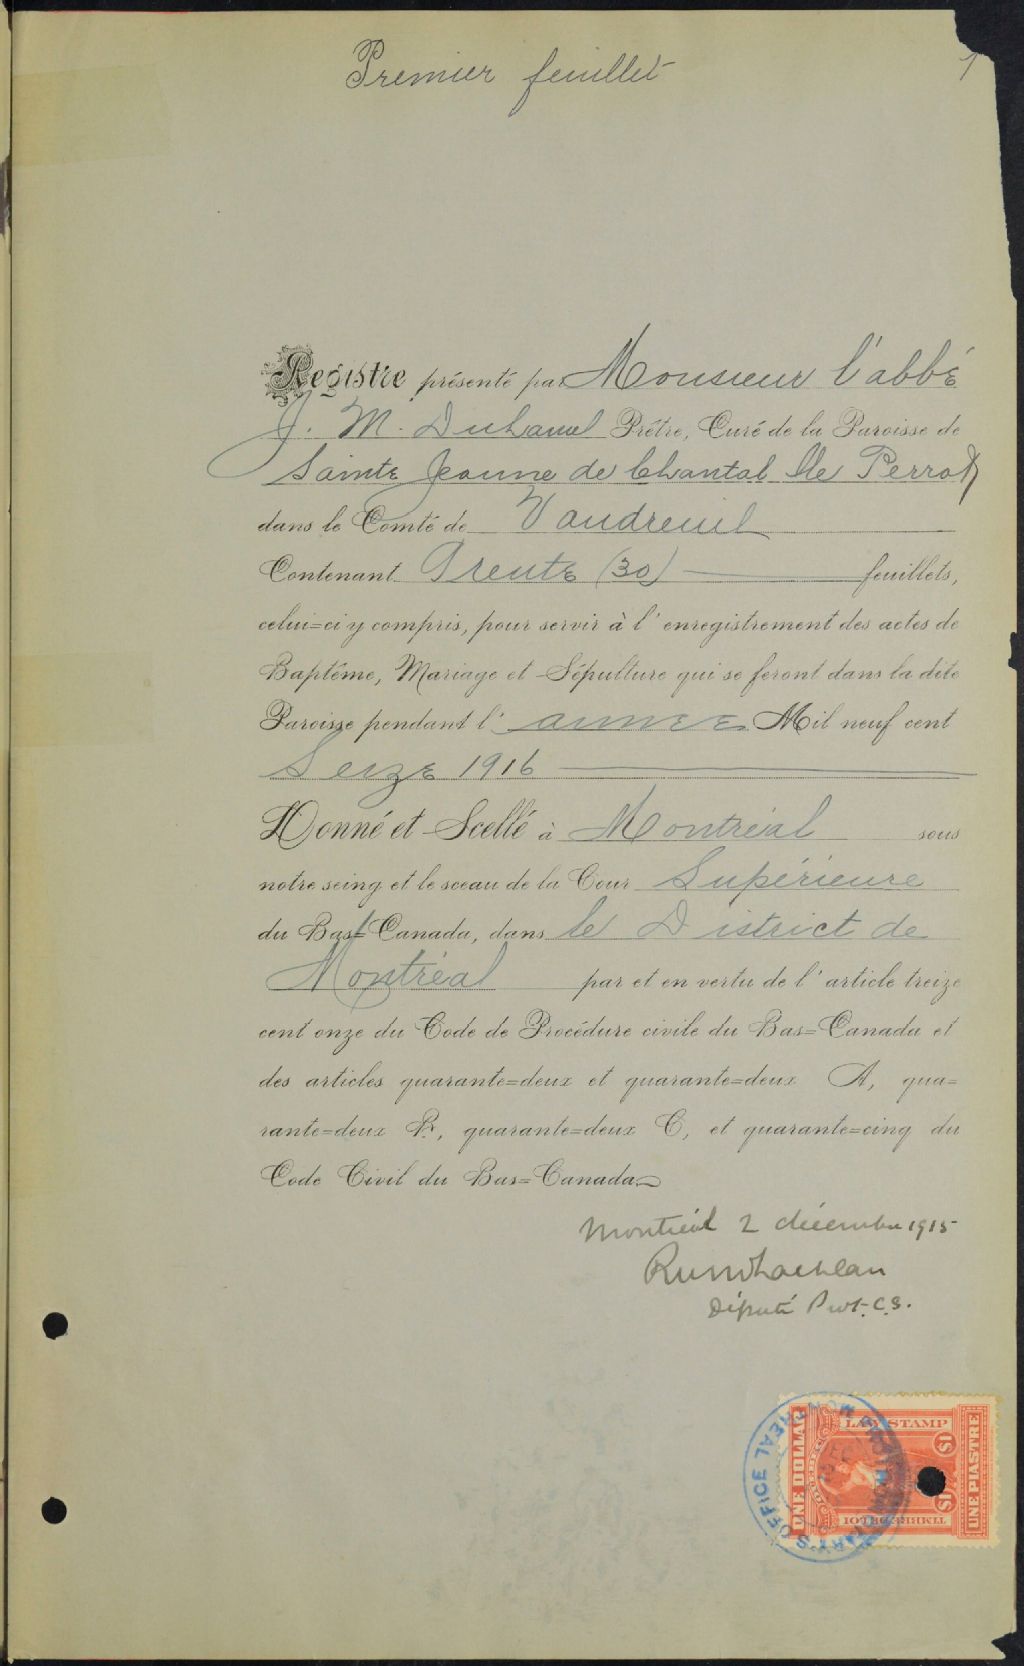 Premier feuillet
1
Registre présenté par Monsieur l'abbé
J. M. Duhamel Prêtre, Curé de la Paroisse de
Sainte Jeanne de Chantal Ile Perrot
dans le Comté de Vaudreuil
Contenant Trente (30) feuillets,
celui=ci y compris, pour servir à l'enregistrement des actes de
Baptême, Mariage et Sépulture qui se feront dans la dite
Paroisse pendant l'année Mil neuf cent
Seize 1916
Donné et Scellé à Montréal sous
notre seing et le sceau de la Cour Supérieure
du Bas=Canada, dans le District de
Montréal par et en vertu de l'article treize
cent onze du Code de Procédure civile du Bas=Canada et
des articles quarante=deux et quarante=deux A, qua=
rante=deux B, quarante=deux C, et quarante=cinq du
Code Civil du Bas=Canada
Montréal 2 décembre 1915
Député Prot. C.S.
LAW STAMP
ONE DOLLAR
$1
$1
UNE PIASTRE
TIMBRE DE LOI
PROTHONOTARY'S OFFICE MONTREAL